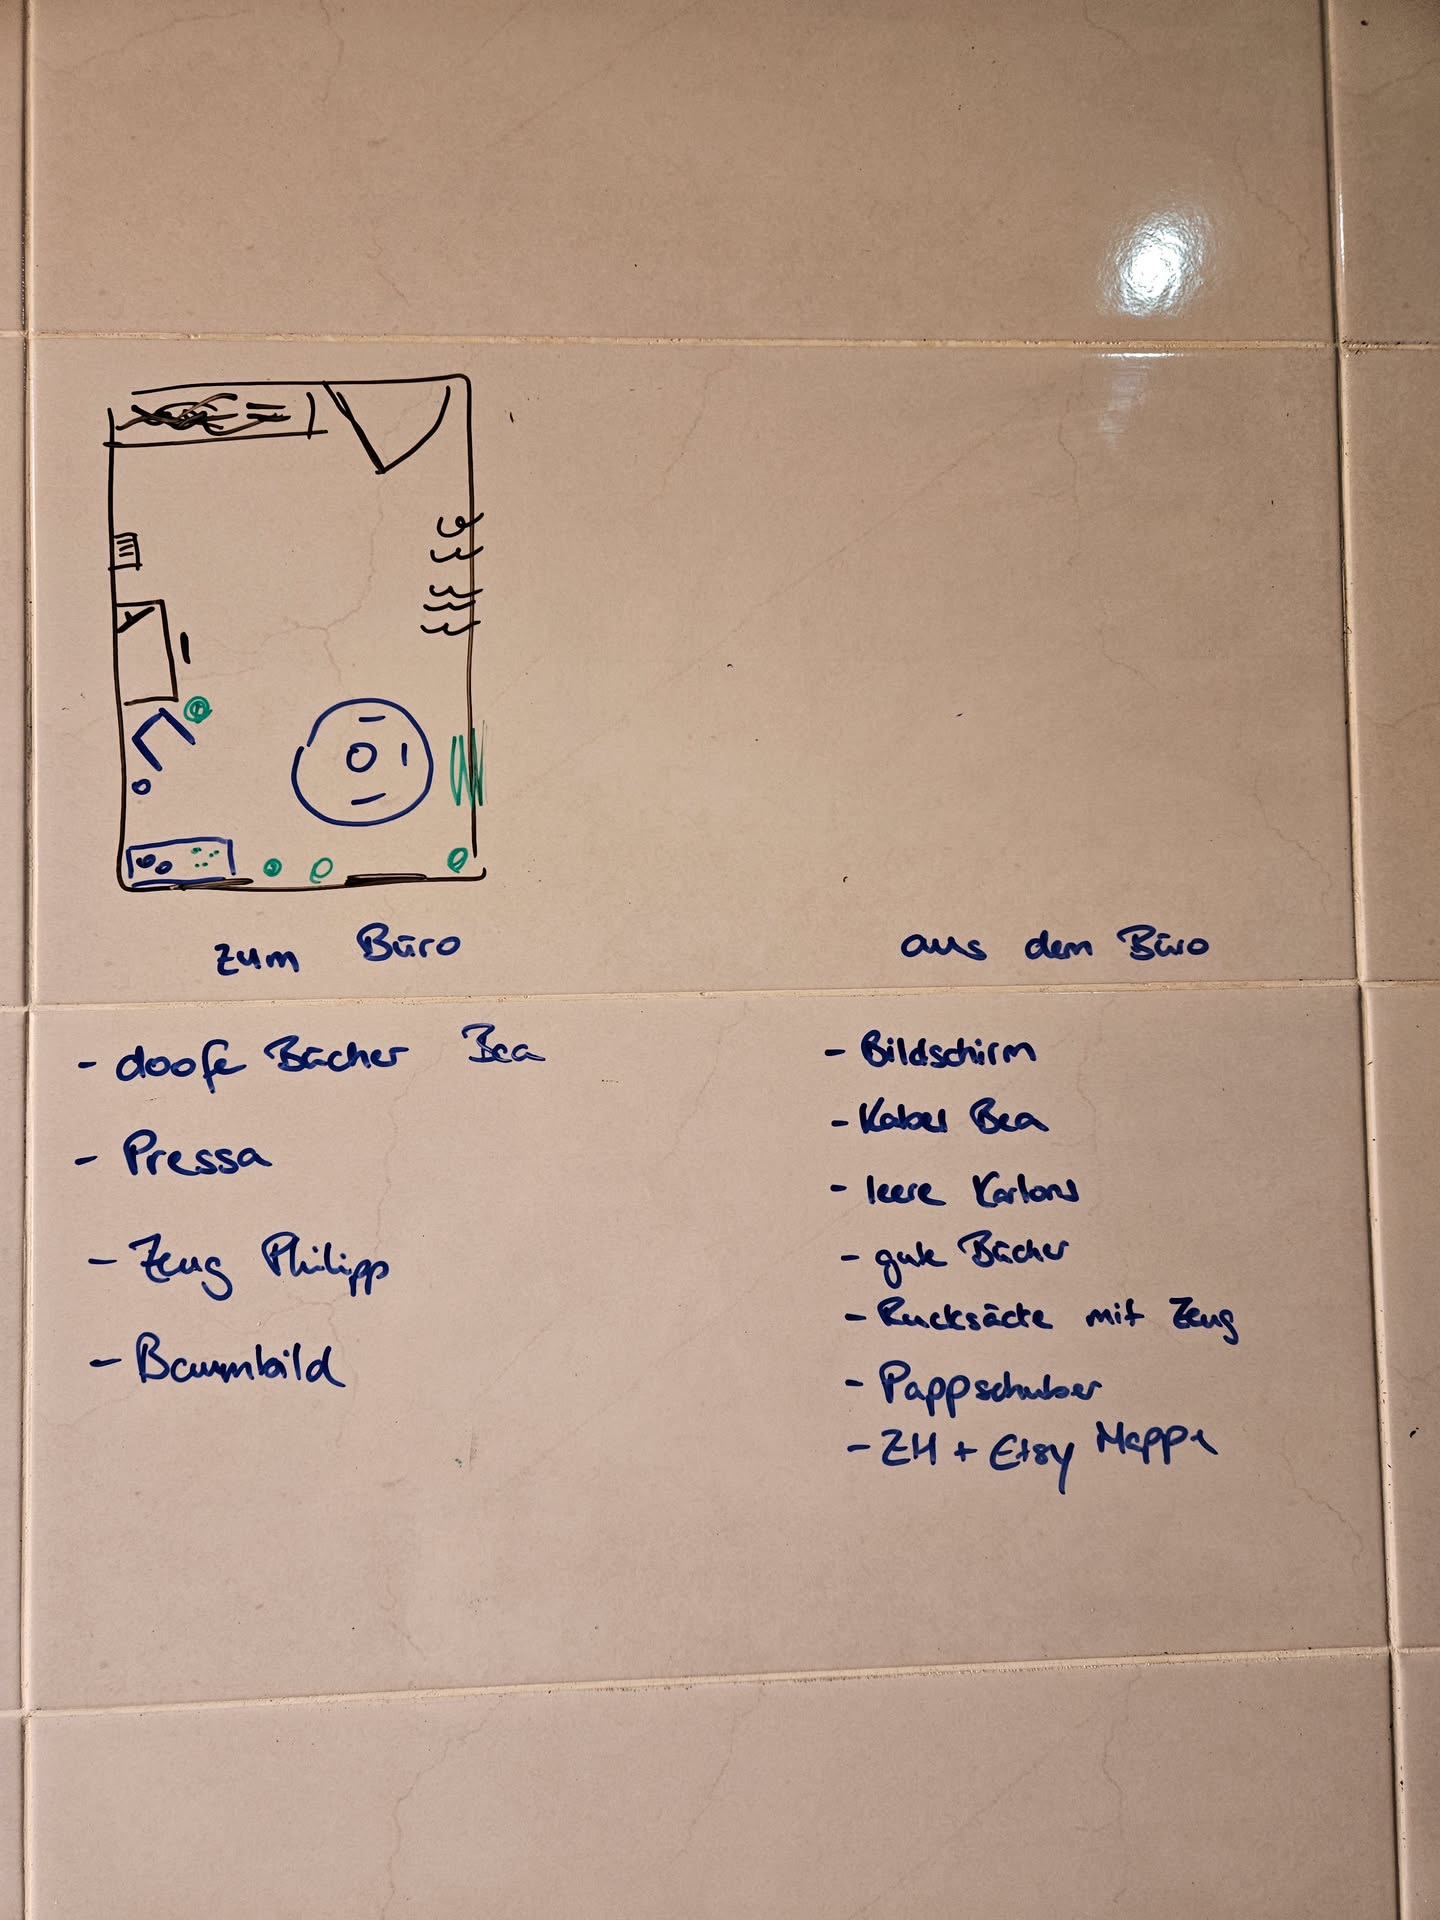 zum Büro
- doofe Bücher Bea
- Pressa
- Zeug Philipp
- Baumbild
aus dem Büro
- Bildschirm
- Kabel Bea
- leere Kartons
- gute Bücher
- Rucksäcke mit Zeug
- Pappschuber
- ZH + Etsy Mappe